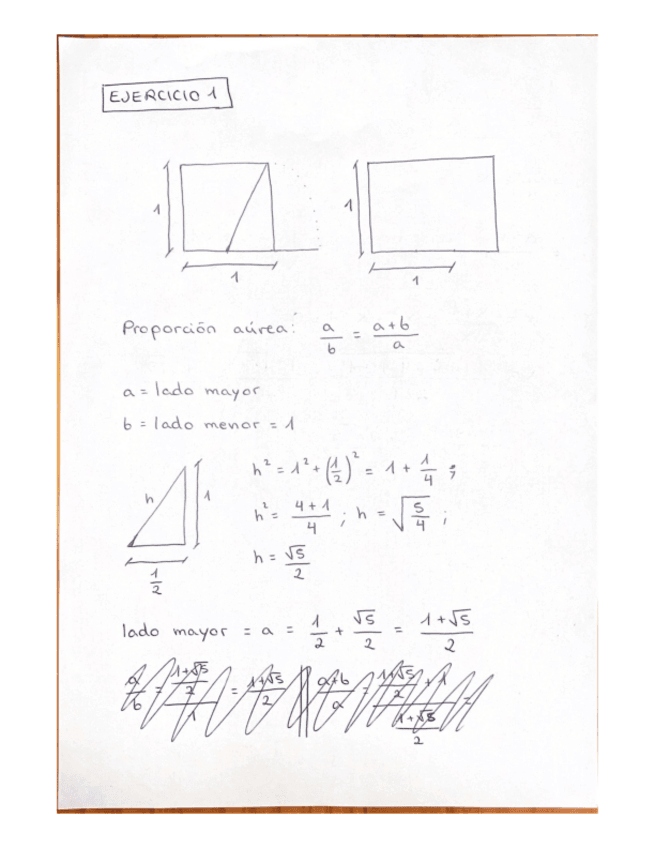 EJERCICIO 1
1 1
1 1
Proporción aúrea: a/b = (a+b)/a
a = lado mayor
b = lado menor = 1
h 1 1/2
h² = 1² + (1/2)² = 1 + 1/4 ;
h² = (4+1)/4 ; h = √(5/4) ;
h = √5/2
lado mayor = a = 1/2 + √5/2 = (1+√5)/2
a/b = ((1+√5)/2)/1 = (1+√5)/2 || (a+b)/a = ((1+√5)/2 + 1)/((1+√5)/2) =